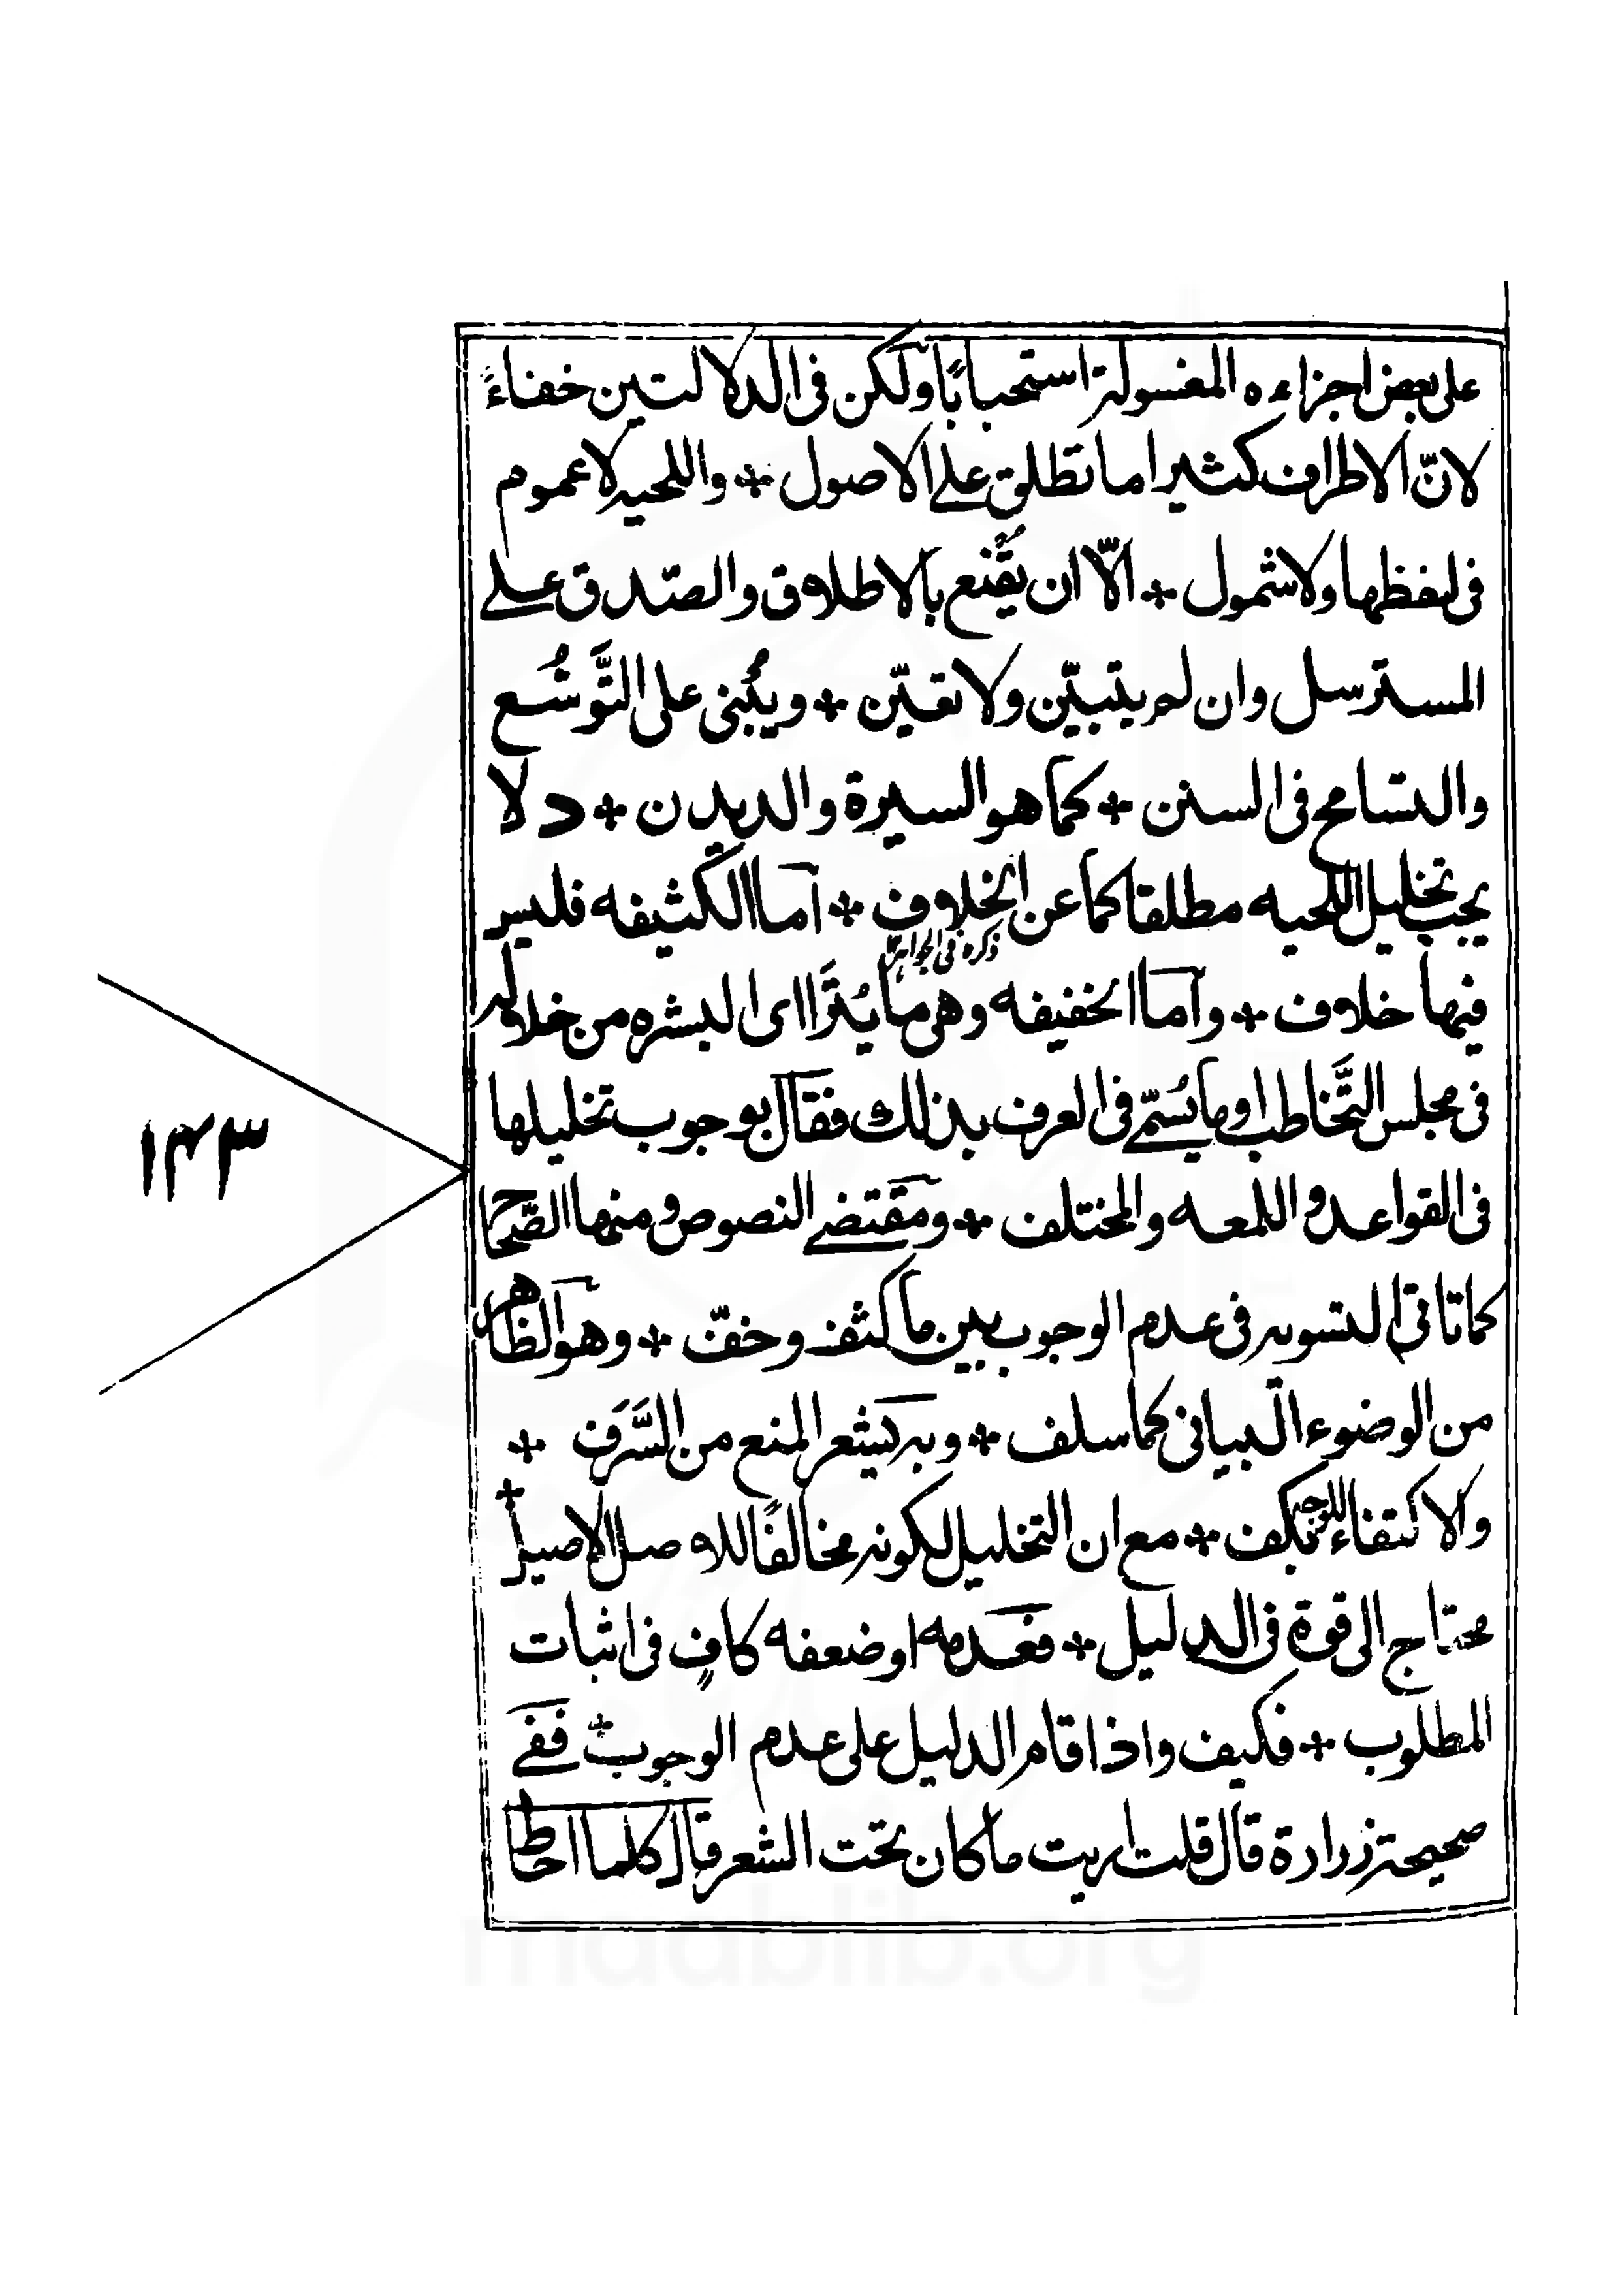 على بعض اجزاءه المغسولة استحبابًا ولكن فى الدلالتين خفاءً
لانّ الاطراف كثيراما تطلق على الاصول * واللحيه لا عموم
فى لفظها ولا شمول * الّا ان يُقنع بالاطلاق والصدق على
المسترسل وان لم يتبيّن ولا تعيّن * ويُبنى على التَّوسُّع
والتسامح فى السنن * كما هو السيرة والديدن * د لا
يجب تخليل اللحيه مطلقا كما عن الخلاف * اما الكثيفه فليس
ذكره فى الجواهر
فيها خلاف * واما الخفيفه وهى ما يُترَااى البشره من خلاله
فى مجلس التَّخاطب او ما يُسمّى فى العرف بذلك فقال بوجوب تخليلها
فى القواعد واللمعه والمختلف * ومقتضى النصوص ومنها الصّحاح
كما تاتى التسويه فى عدم الوجوب بين ما كثف وخفّ * وهو الظاهر
من الوضوء البيانى كما سلف * وبه يشعر المنع من السَّرَف *
والاكتفاء للوجه بكف * مع ان التخليل لكونه مخالفًا للاصل الاصيل *
محتاج الى قوة فى الدليل * فعدمه او ضعفه كافٍ فى اثبات
المطلوب * فكيف واذا قام الدليل على عدم الوجوب * ففى
صحيحة زرارة قال قلت اريت ما كان تحت الشعر قال كلما احاط
١٤٣
maablib.org